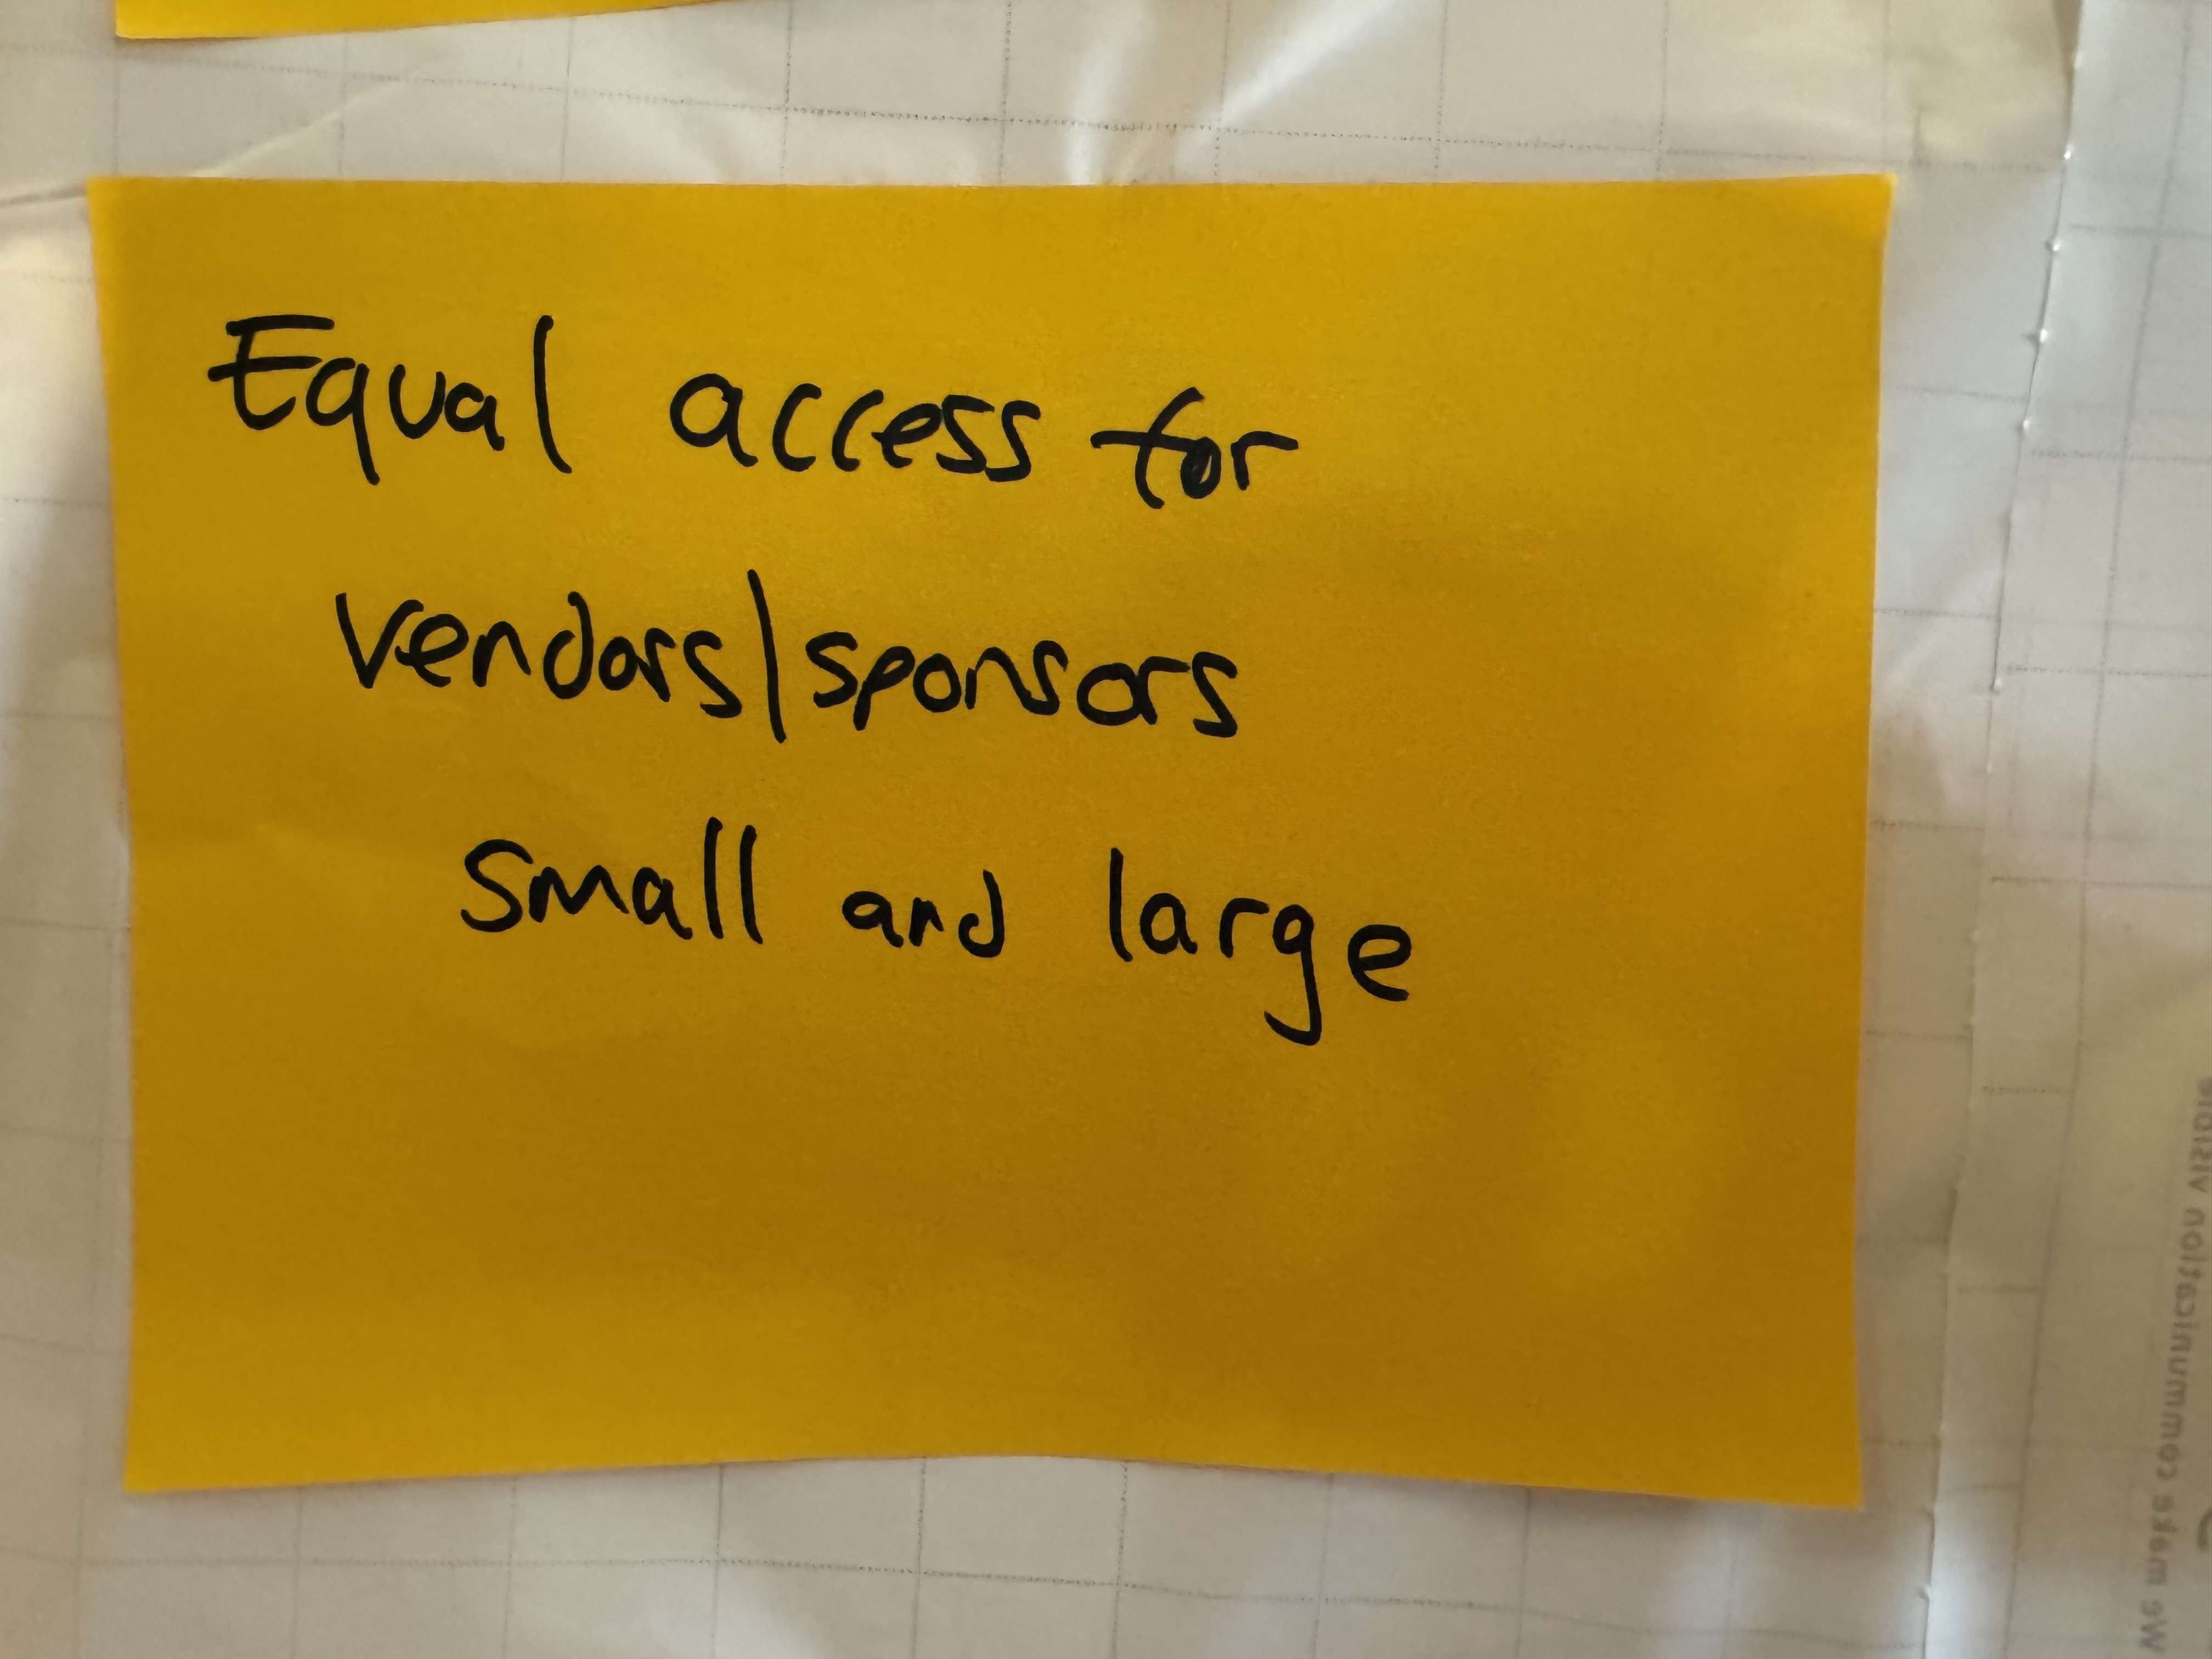 Equal access for
vendors/sponsors
small and large
We make communication visible